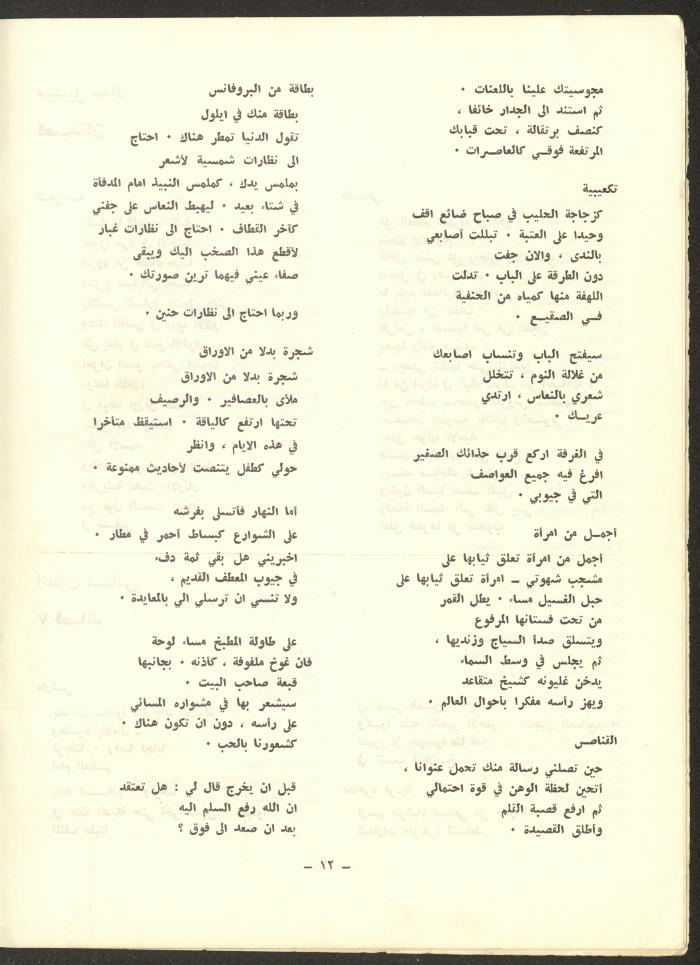 مجوسيتك علينا باللعنات ٠
ثم استند الى الجدار خائفا ،
كنصف برتقالة ، تحت قبابك
المرتفعة فوقـي كالعاصـرات ٠
تكعيبية
كزجاجة الحليب في صباح ضائع اقف
وحيدا على العتبة ٠ تبللت أصابعي
بالندى ، والان جفت
دون الطرقة على الباب ٠ تدلت
اللهفة منها كمياه من الحنفية
فـي الصقيـع ٠
سيفتح الباب وتنساب اصابعك
من غلالة النوم ، تتخلل
شعري بالنعاس ، ارتدي
عريـك ٠
في الغرفة اركع قرب حذائك الصغير
افرغ فيه جميع العواصف
التي في جيوبي ٠
أجمـل من امرأة
أجمل من امرأة تعلق ثيابها على
مشجب شهوتي ــ امرأة تعلق ثيابها على
حبل الغسيل مساء ٠ يطل القمر
من تحت فستانها المرفوع
ويتسلق صدأ السياج وزنديها ،
ثم يجلس في وسط السماء
يدخن غليونه كشيخ متقاعد
ويهز رأسه مفكرا بأحوال العالم ٠
القناصـ
حين تصلني رسالة منك تحمل عنوانا ،
أتحين لحظة الوهن في قوة احتمالي
ثم ارفع قصبة القلم
وأطلق القصيدة ٠
بطاقة من البروفانس
بطاقة منك في ايلول
تقول الدنيا تمطر هناك ٠ احتاج
الى نظارات شمسية لأشعر
بملمس يدك ، كملمس النبيذ امام المدفأة
في شتاء بعيد ٠ ليهبط النعاس على جفني
كآخر القطاف ٠ احتاج الى نظارات غبار
لأقطع هذا الصخب اليك ويبقى
صفاء عيني فيهما ترين صورتك ٠
وربما احتاج الى نظارات حنين ٠
شجرة بدلا من الاوراق
شجرة بدلا من الاوراق
ملأى بالعصافير ٠ والرصيف
تحتها ارتفع كالياقة ٠ استيقظ متأخرا
في هذه الايام ، وانظر
حولي كطفل يتنصت لأحاديث ممنوعة ٠
أما النهار فأتسلى بفرشه
على الشوارع كبساط أحمر في مطار ٠
اخبريني هل بقي ثمة دفء
في جيوب المعطف القديم ،
ولا تنسي ان ترسلي الي بالمعايدة ٠
على طاولة المطبخ مساء لوحة
فان غوخ ملفوفة ، كأذنه ٠ بجانبها
قبعة صاحب البيت ٠
سيشعر بها في مشواره المسائي
على رأسه ، دون ان تكون هناك ٠
كشعورنا بالحب ٠
قبل ان يخرج قال لي : هل تعتقد
ان الله رفع السلم اليه
بعد ان صعد الى فوق ؟
ــ ١٢ ــ